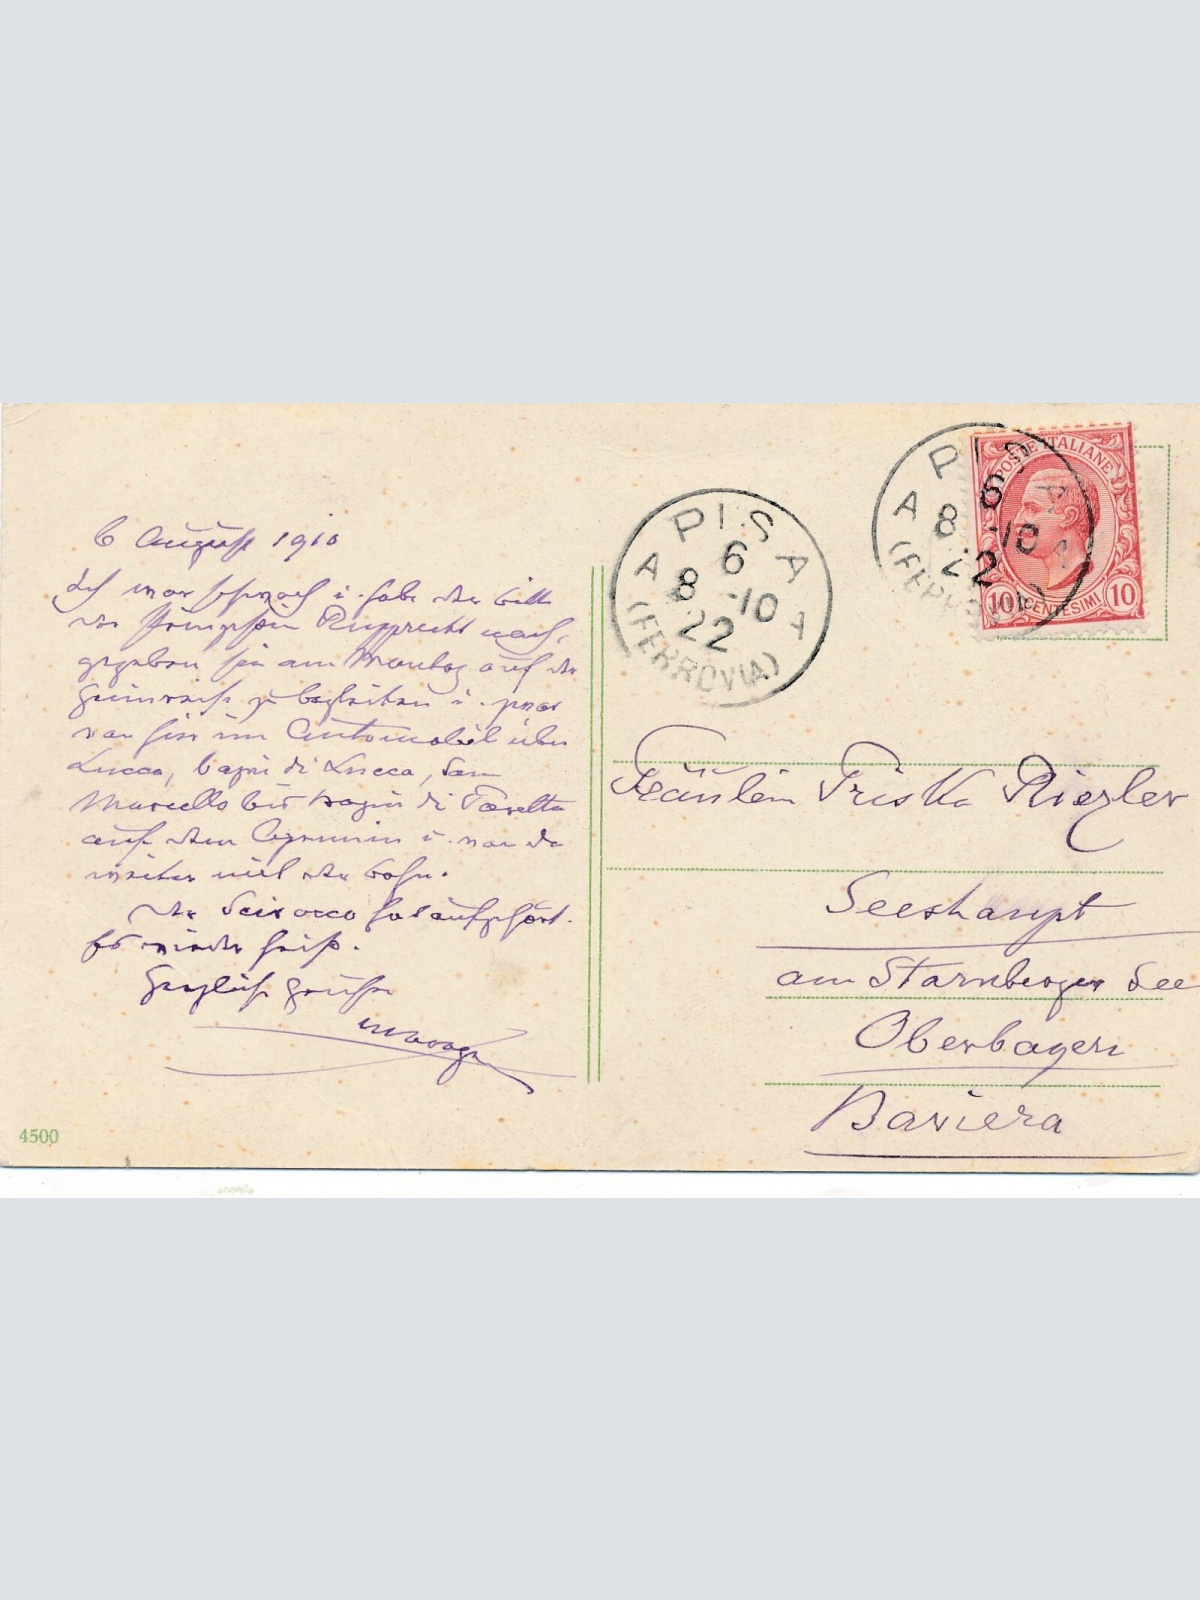 6 August 1910
Ich war schwach u. habe der Bitte
der Prinzessin Rupprecht nach-
gegeben sie am Montag auf der
Heimreise zu begleiten u. zwar
von hier im Automobil über
Lucca, bagni di Lucca, San
Marcello bis bagni di Poretta
auf dem Apennin u. von da
weiter mit der Bahn.
Der Scirocco hat aufgehört.
Es wieder heiß.
Herzliche Grüße
4500
PISA
A
6
8 -10
22
(FERROVIA)
PISA
A
6
8 -10
22
(FERROVIA)
POSTE ITALIANE
10 CENTESIMI 10
Fräulein Friska Riezler
Seeshaupt
am Starnberger See
Oberbayern
Baviera